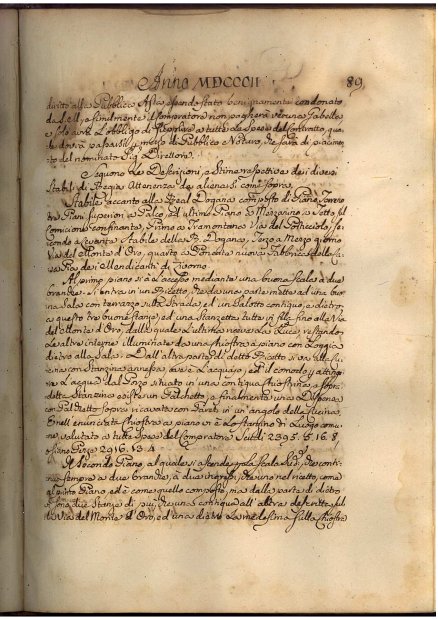 Anno MDCCCII 89
diritto alla Pubblica Asta, essendo stato benignamente condonato
da S. M., e finalmente il compratore non pagherà veruna Gabella
e solo avrà l'obbligo di supplire a tutte le Spese del Contratto, qua
le dovrà passarsi per mezzo di Pubblico Notaro, che sarà di piacimen
to del nominato Sig. Direttore.
Seguono le Descrizioni, e Stime respettive dei diversi
Stabili di Regia Attenenza da alienarsi come sopra.
Stabile accanto alla Real Dogana composto di Piano Terreno
tre Piani Superiori a Palco, ed ultimo Piano o Mezzanino a Tetto sul
Cornicione confinante, Primo a Tramontana Via del Porticciolo, se
condo a Levante Stabile della R. Dogana, Terzo a Mezzo giorno
Via del Monte d'Oro, quarto a Ponente nuova Fabbrica della
Pia dei Mendicanti di Livorno.
Al primo piano si à l'accesso mediante una buona Scala a due
branche, e si entra in un Ricetto, che da una parte mette ad una buo
na Sala con terrazzo sulla Strada, ed un Salotto contiguo, e dietro
a questo tre buone Stanze, ed una Stanzetta tutte in fila fino alla Via
del Monte d'Oro, dalla quale l'ultima riceve la Luce, restando
le altre interne illuminate da una chiostra a piano con Loggia
dietro alla Sala. Dall'altra parte di detto Ricetto si va alla Cu
cina con Stanzina annessa, ove è l'acquaio, ed il comodo per attinge
re l'acqua dal Pozzo situato in una contigua chiostrina, e sopra
detta Stanzina esiste un Palchetto, e finalmente una Dispensa
con Palchetto sopra ricavata con Pareti in un angolo della Cucina,
e nell'enunciata Chiostra a piano vi è lo Stanzino di Luogo como
ne, valutato a tutte Spese del Compratore Scudi 2395. 5. 16. 8
o siano Pezze 2916. 13. 4
Il Secondo Piano, al quale si ascende per la Scala Sud. che conti
nua sempre a due branche, à due ingressi, che uno nel ricetto, come
al primo Piano ed è come quello composto, ma dalla parte di dietro
sono due Stanze di più, che una contigua all'altra descritta sul
di Via del Monte d'Oro, ed una dietro la medesima sulla Chiostra